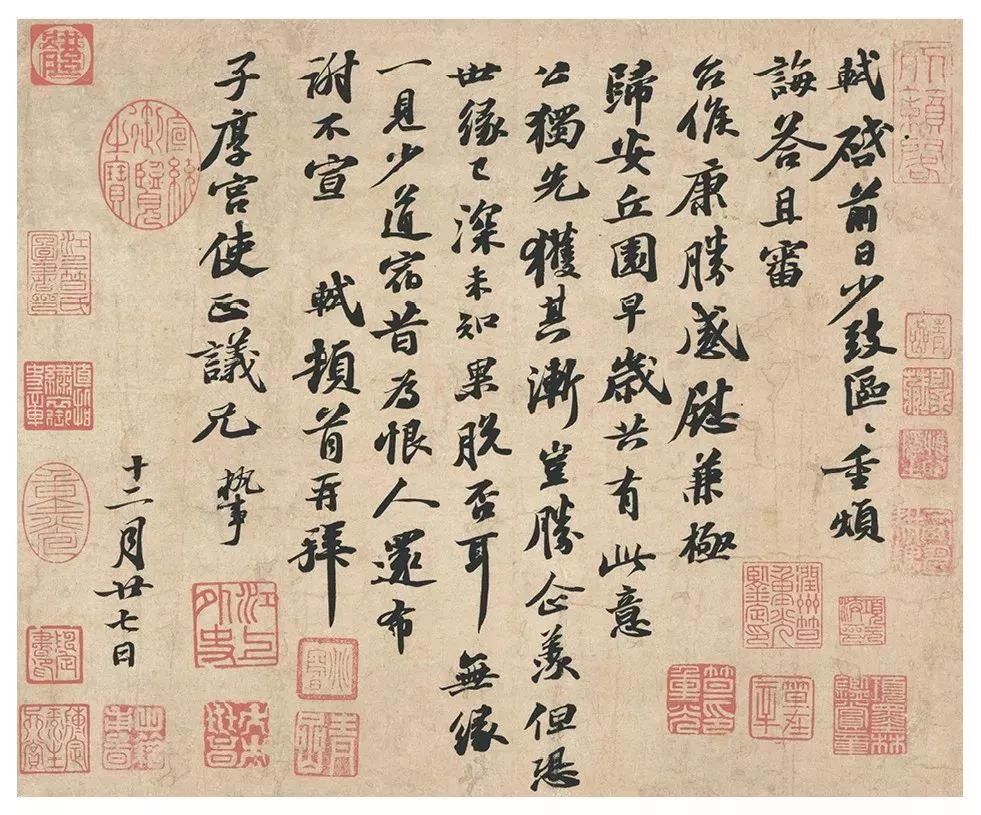 軾啓前日少致區〻重煩
誨荅且審
台候康勝感慰兼極
歸安丘園早歲共有此意
公獨先獲其漸豈勝企羨但恐
世緣已深未知果脫否耳無緣
一見少道宿昔為恨人還布
謝不宣 軾頓首再拜
子厚宫使正議兄 執事
十二月廿七日
宣統御覽之寶
江上外史